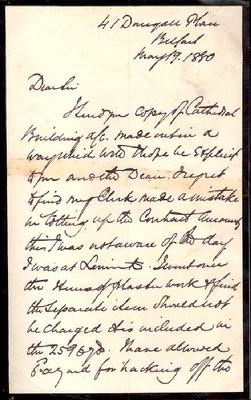 41 Donegall Place
Belfast
May 19. 1880
Dear Sir
I send you copy of Cathedral
Building a/c. made out in a
way which will I hope be explicit
to you and the Dean. I regret
to find my Clerk made a mistake
in totting up the Contract Amount
this I was not aware of the day
I was at I went over
the items of plaster work & find
the separate item should not
be charged it is included in
the 2596 yds. I have allowed
per yard for hacking off the